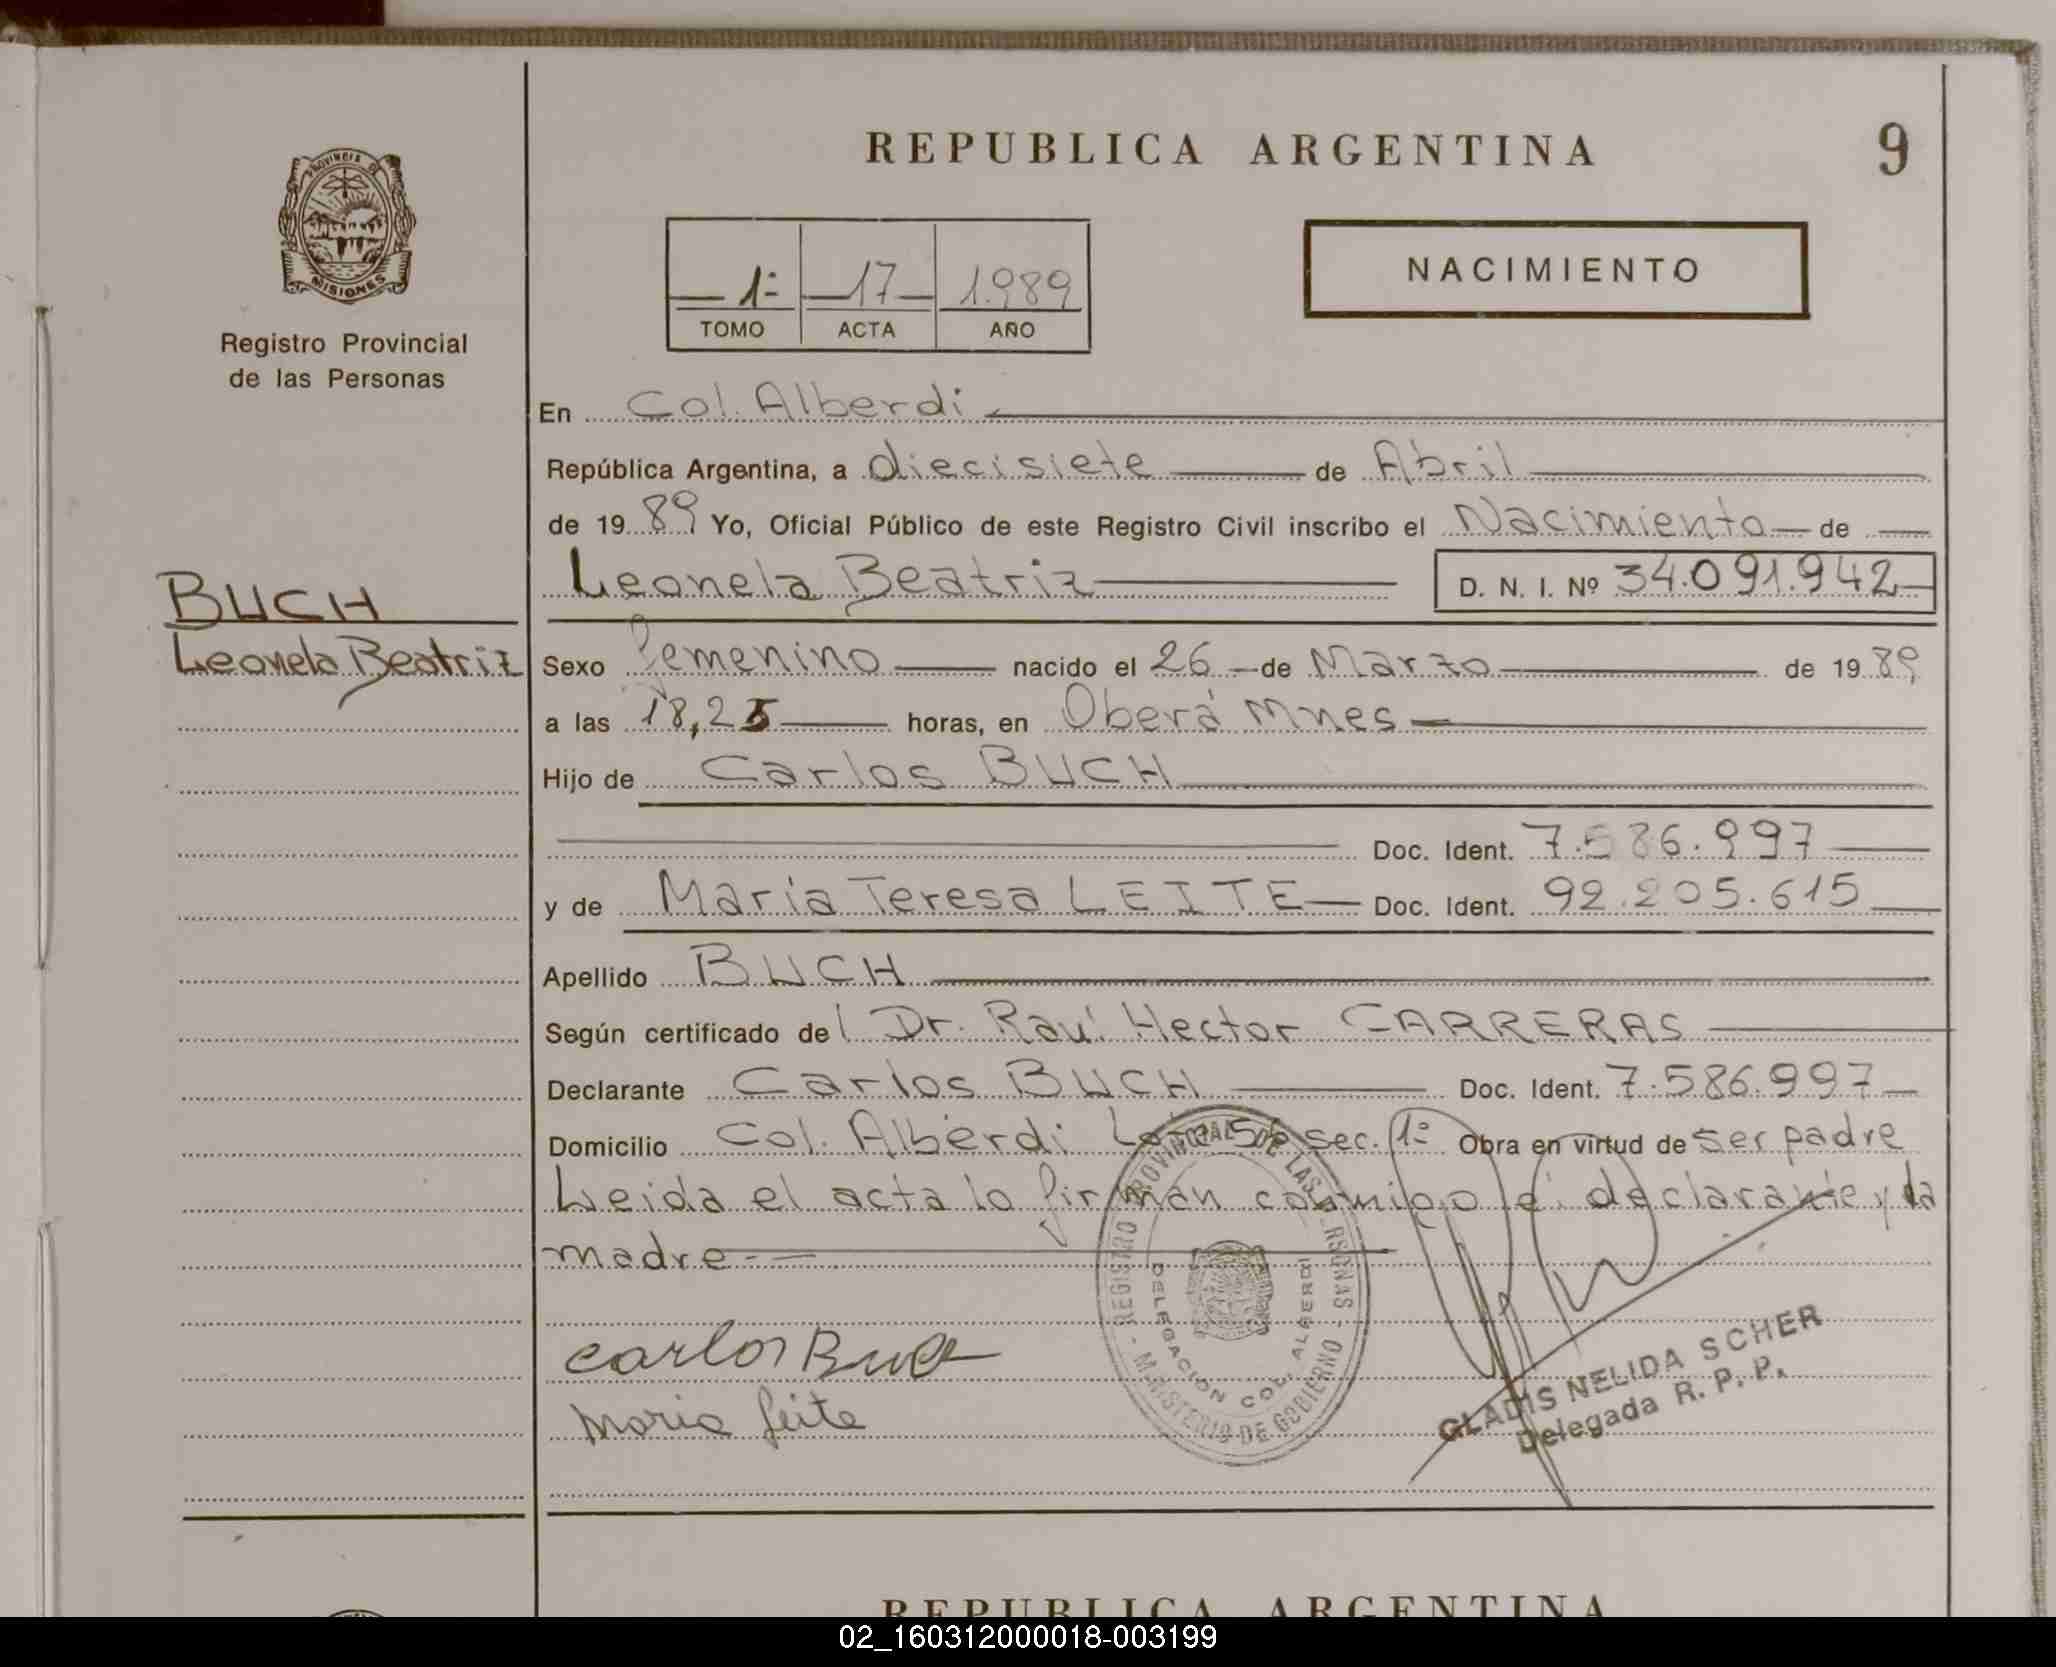 REPUBLICA ARGENTINA
9
PROVINCIA DE
MISIONES
Registro Provincial
de las Personas
1º 17 1.989
TOMO ACTA AÑO
NACIMIENTO
En Col. Alberdi
República Argentina, a diecisiete de Abril
de 19 89 Yo, Oficial Público de este Registro Civil inscribo el Nacimiento de
Leonela Beatriz D. N. I. Nº 34.091.942
BUCH
Leonela Beatriz
Sexo femenino nacido el 26 de Marzo de 19 89
a las 18,25 horas, en Oberá Mnes
Hijo de Carlos BUCH
Doc. Ident. 7.586.997
y de María Teresa LEITE Doc. Ident. 92.205.615
Apellido BUCH
Según certificado del Dr. Raul Hector CARRERAS
Declarante Carlos BUCH Doc. Ident. 7.586.997
Domicilio Col. Alberdi Lote sec. 1º Obra en virtud de ser padre
Leida el acta lo firman conmigo el declarante y la
madre.-
Carlos Buch
Maria Leite
REGISTRO PROVINCIAL DE LAS PERSONAS - MINISTERIO DE GOBIERNO -
DELEGACION COL. ALBERDI
GLADIS NELIDA SCHER
Delegada R. P. P.
REPUBLICA ARGENTINA
02_160312000018-003199